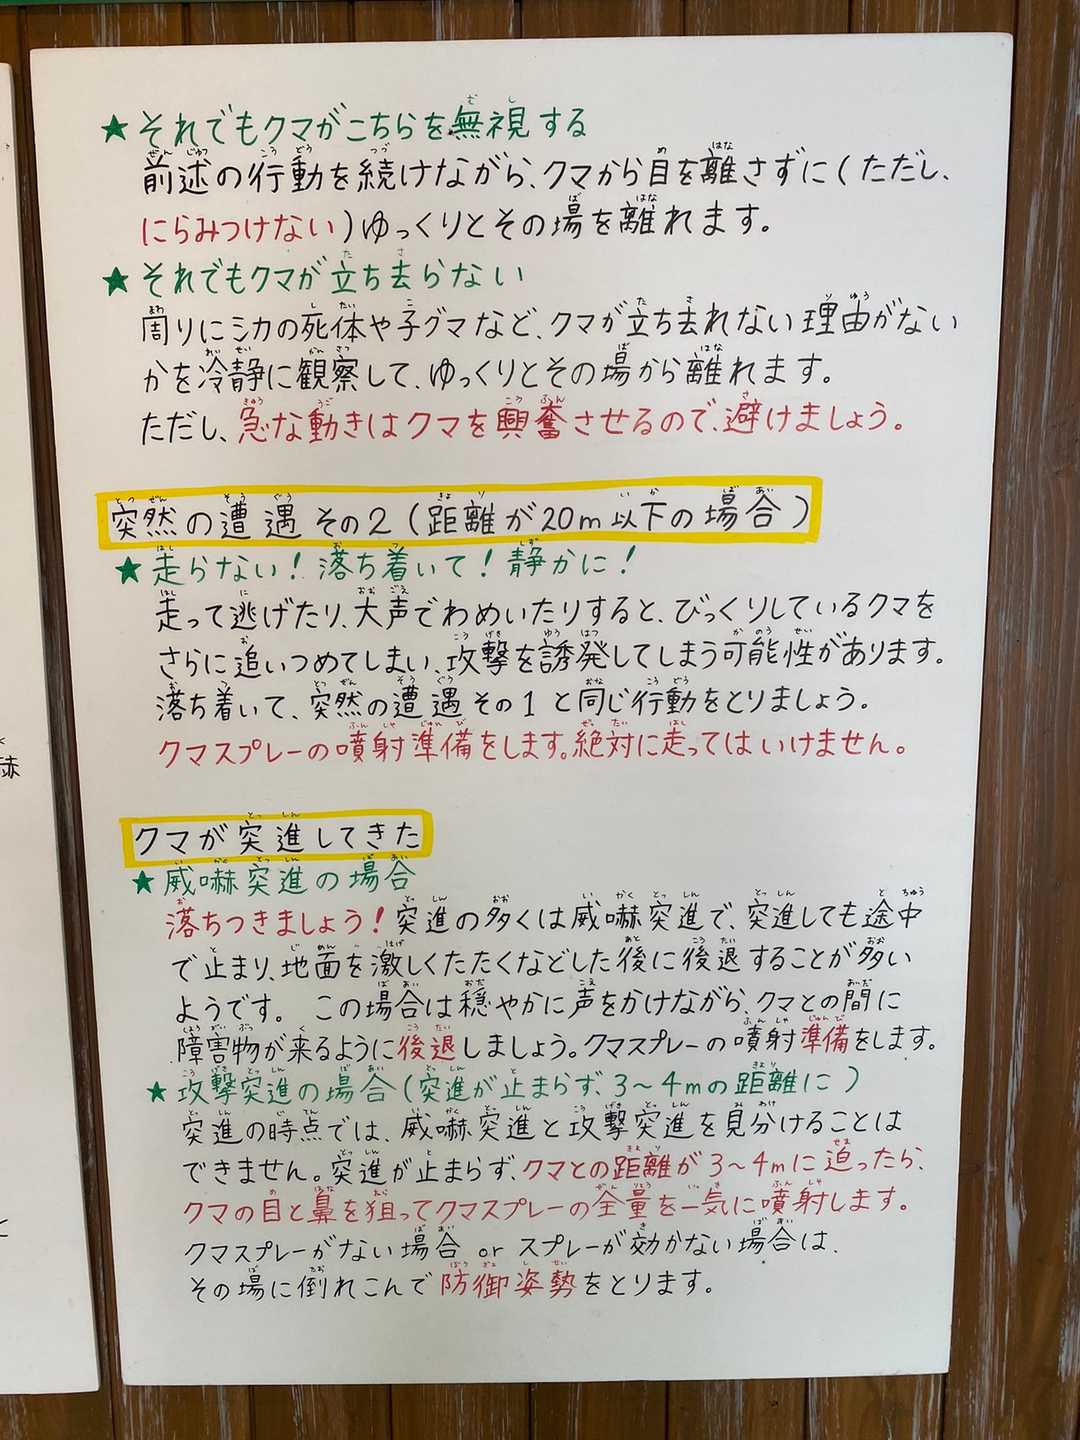 ★それでもクマがこちらを無視する
前述の行動を続けながら、クマから目を離さずに(ただし、
にらみつけない)ゆっくりとその場を離れます。
★それでもクマが立ち去らない
周りにシカの死体や子グマなど、クマが立ち去れない理由がない
かを冷静に観察して、ゆっくりとその場から離れます。
ただし、急な動きはクマを興奮させるので、避けましょう。
突然の遭遇その2(距離が20m以下の場合)
★走らない!落ち着いて!静かに!
走って逃げたり、大声でわめいたりすると、びっくりしているクマを
さらに追いつめてしまい、攻撃を誘発してしまう可能性があります。
落ち着いて、突然の遭遇その1と同じ行動をとりましょう。
クマスプレーの噴射準備をします。絶対に走ってはいけません。
クマが突進してきた
★威嚇突進の場合
落ちつきましょう!突進の多くは威嚇突進で、突進しても途中
で止まり、地面を激しくたたくなどした後に後退することが多い
ようです。この場合は穏やかに声をかけながら、クマとの間に
障害物が来るように後退しましょう。クマスプレーの噴射準備をします。
★攻撃突進の場合(突進が止まらず、3〜4mの距離に)
突進の時点では、威嚇突進と攻撃突進を見分けることは
できません。突進が止まらず、クマとの距離が3〜4mに迫ったら、
クマの目と鼻を狙ってクマスプレーの全量を一気に噴射します。
クマスプレーがない場合 or スプレーが効かない場合は、
その場に倒れこんで防御姿勢をとります。